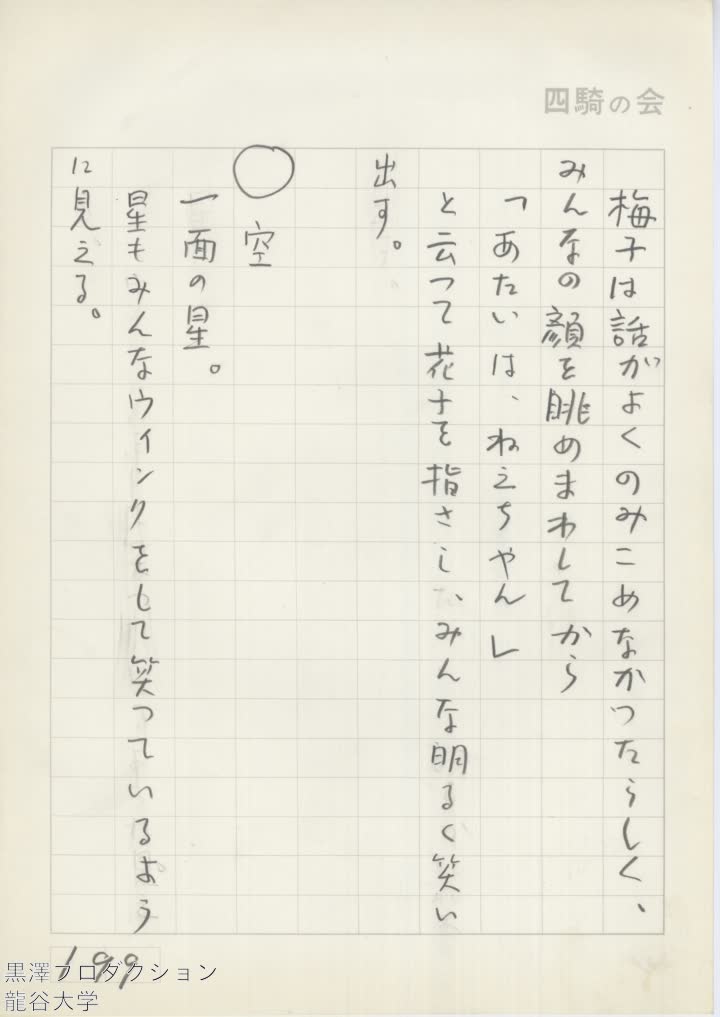 四騎の会
梅子は話がよくのみこめなかつたらしく、
みんなの顔を眺めまわしてから
「あたいは、ねえちやん」
と云つて花子を指さし、みんな明るく笑い
出す。
○空
一面の星。
星もみんなウインクをして笑つているよう
に見える。
199
黒澤プロダクション
龍谷大学